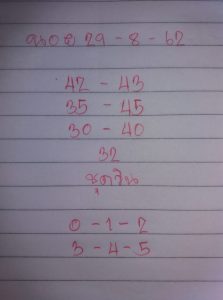 งวด 29 - 8 - 62
42 - 43
35 - 45
30 - 40
32
ชุดวิน
0 - 1 - 2
3 - 4 - 5